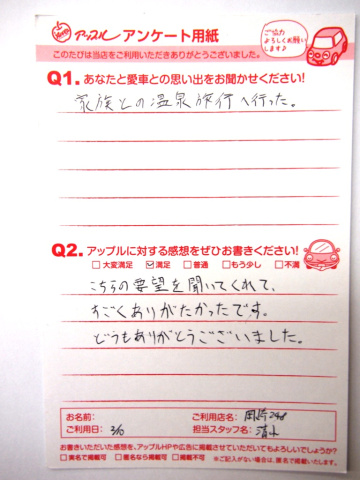 アップル アンケート用紙
ご協力
よろしくお願い
します♪
このたびは当店をご利用いただきありがとうございました。
Q1. あなたと愛車との思い出をお聞かせください!
家族との温泉旅行へ行った。
Q2. アップルに対する感想をぜひお書きください!
□大変満足 ☑満足 □普通 □もう少し □不満
こちらの要望を聞いてくれて、
すごくありがたかったです。
どうもありがとうございました。
お名前: ご利用店名: 岡崎248
ご利用日: 3/10 担当スタッフ名: 清水
お書きいただいた感想を、アップルHPや広告に掲載させていただいてもよろしいでしょうか?
□実名で掲載可 □匿名なら掲載可 □掲載不可 ※ご記入がない場合は、匿名で掲載いたします。